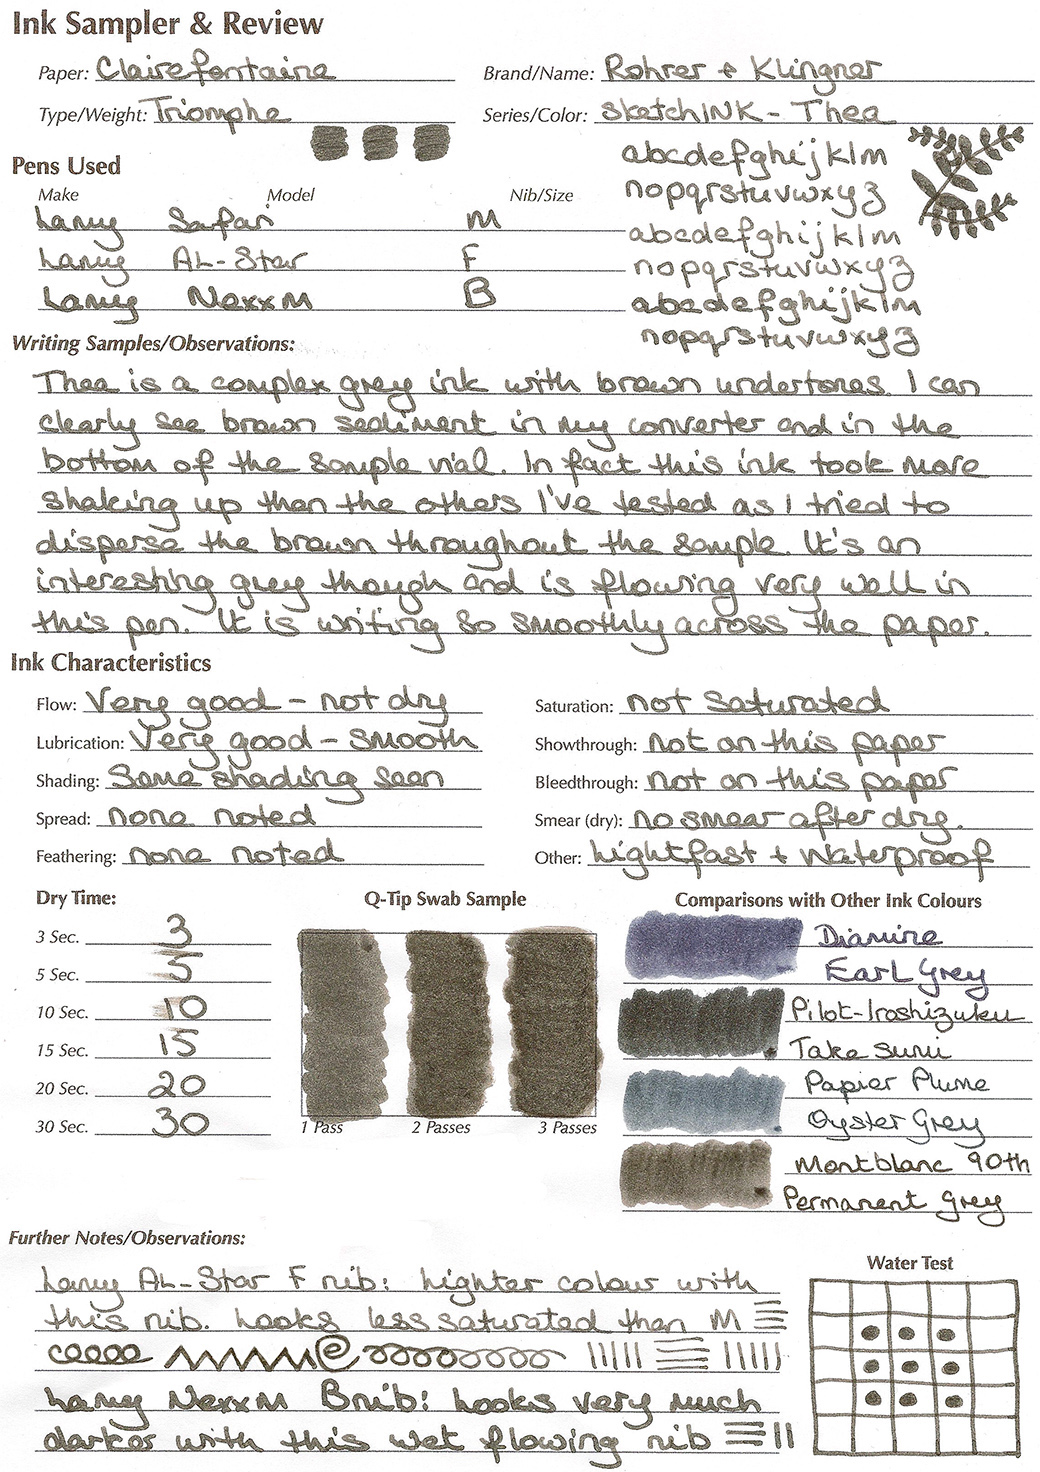 Ink Sampler & Review
Paper: Clairefontaine
Brand/Name: Rohrer + Klingner
Type/Weight: Triomphe
Series/Color: SketchINK - Thea
abcdefghijklm
nopqrstuvwxyz
abcdefghijklm
nopqrstuvwxyz
abcdefghijklm
nopqrstuvwxyz
Pens Used
Make Model Nib/Size
Lamy Safari M
Lamy AL-Star F
Lamy Nexx M B
Writing Samples/Observations:
Thea is a complex grey ink with brown undertones. I can
clearly see brown sediment in my converter and in the
bottom of the sample vial. In fact this ink took more
shaking up than the others I've tested as I tried to
disperse the brown throughout the sample. It's an
interesting grey though and is flowing very well in
this pen. It is writing so smoothly across the paper.
Ink Characteristics
Flow: Very good - not dry
Saturation: not saturated
Lubrication: Very good - smooth
Showthrough: not on this paper
Shading: Some shading seen
Bleedthrough: not on this paper
Spread: none noted
Smear (dry): no smear after dry.
Feathering: none noted
Other: Lightfast + Waterproof
Dry Time:
3 Sec. 3
5 Sec. 5
10 Sec. 10
15 Sec. 15
20 Sec. 20
30 Sec. 30
Q-Tip Swab Sample
1 Pass 2 Passes 3 Passes
Comparisons with Other Ink Colours
Diamine
Earl Grey
Pilot-Iroshizuku
Take sumi
Papier Plume
Oyster Grey
Montblanc 90th
Permanent Grey
Further Notes/Observations:
Lamy AL-Star F nib: Lighter colour with
this nib. Looks less saturated than M
e
Lamy Nexx M B nib: Looks very much
darker with this wet flowing nib
Water Test